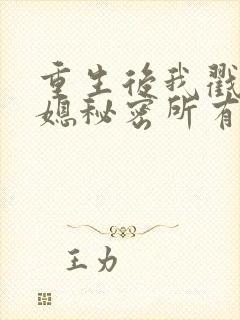 重生后我戳
媳秘密所有
王力